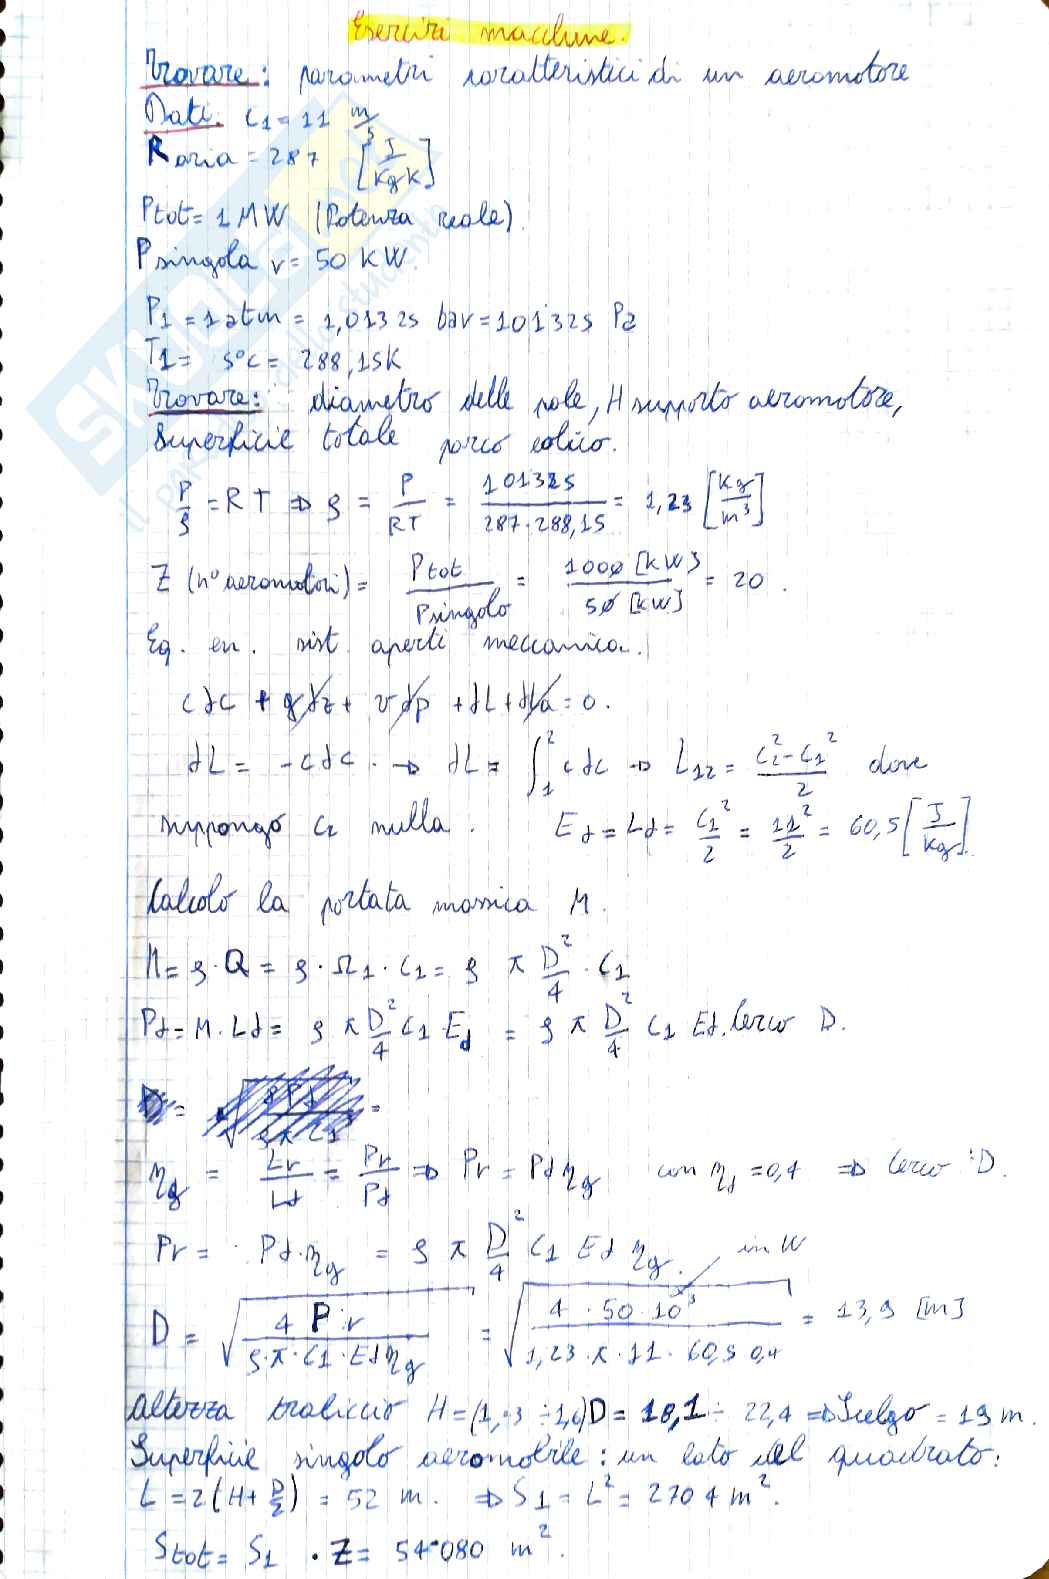 Esercizi macchine.
Trovare: parametri caratteristici di un aeromotore
Dati. C1 = 11 m/s
R aria = 287 [J/kg K]
Ptot = 1 MW (Potenza reale).
P singola r = 50 KW.
P1 = 1 atm = 1,01325 bar = 101325 Pa
T1 = 5°C = 288,15K
Trovare: diametro delle pale, H supporto aeromotore,
Superficie totale parco eolico.
P/ρ = RT ⇒ ρ = P/RT = 101325/287·288,15 = 1,23 [Kg/m³]
Z (n° aeromotori) = Ptot/Psingolo = 1000 [kW]/50 [kW] = 20.
Eq. en. sist. aperti meccanica.
cdc + gdz + vdp + dL + dLa = 0.
dL = -cdc. → dL = ∫₁² cdc → L12 = C2²-C1²/2 dove
suppongo C2 nulla. Ed = Ld = C1²/2 = 11²/2 = 60,5 [J/kg]
Calcolo la portata massica M.
M = ρ·Q = ρ·Ω1·C1 = ρ π D²/4 · C1
Pd = M·Ld = ρ π D²/4 C1 · Ed = ρ π D²/4 C1 Ed. Cerco D.
ηg = Lr/Ld = Pr/Pd ⇒ Pr = Pd ηg con ηd = 0,4 ⇒ Cerco :D.
Pr = Pd·ηg = ρ π D²/4 C1 Ed ηg. in W
D = √4 Pr/ρ·π·C1·Ed ηg = √4·50·10³/1,23·π·11·60,5 0,4 = 13,9 [m]
Altezza traliccio H = (1,3 ÷ 1,6)D = 18,1 ÷ 22,4 ⇒ Scelgo = 19 m.
Superficie singolo aeromobile: un lato del quadrato:
L = 2(H + D/2) = 52 m. ⇒ S1 = L² = 2704 m².
Stot = S1 · Z = 54·080 m².